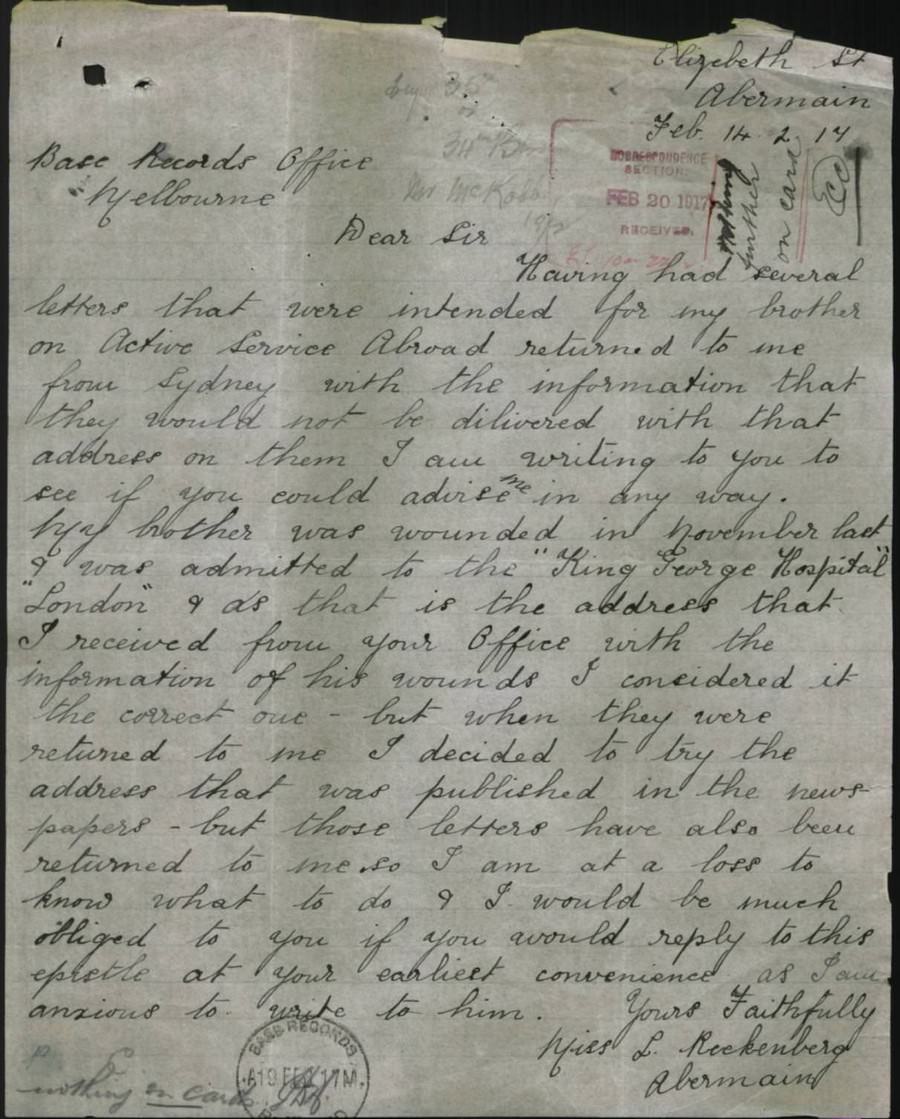 Elizabeth St
Abermain
Feb. 14. 2. 17
Base Records Office
Melbourne
34th Btn
CORRESPONDENCE
SECTION.
FEB 20 1917
RECEIVED.
nothing
further
on card
Dear Sir
Having had several
letters that were intended for my brother
on Active Service Abroad returned to me
from Sydney with the information that
they would not be dilivered with that
address on them I am writing to you to
see if you could advise me in any way.
My brother was wounded in November last
& was admitted to the "King George Hospital"
"London" & as that is the address that
I received from your Office with the
information of his wounds I considered it
the correct one - but when they were
returned to me I decided to try the
address that was published in the news-
papers - but those letters have also been
returned to me so I am at a loss to
know what to do & I would be much
obliged to you if you would reply to this
epistle at your earliest convenience as I am
anxious to write to him. Yours Faithfully
Miss L. Reckenberg
Abermain
BASE RECORDS
nothing on card